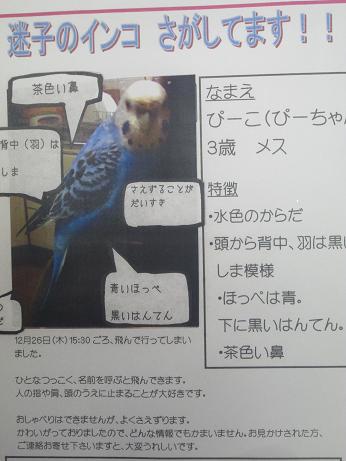 迷子のインコ さがしてます!!
茶色い鼻
背中(羽)は
しま
さえずることが
だいすき
青いほっぺ
黒いはんてん
なまえ
ぴーこ(ぴーちゃん
3歳 メス
特徴
・水色のからだ
・頭から背中、羽は黒い
しま模様
・ほっぺは青。
下に黒いはんてん。
・茶色い鼻
12月26日(木)15:30ごろ、飛んで行ってしまい
ました。
ひとなつっこく、名前を呼ぶと飛んできます。
人の指や肩、頭のうえに止まることが大好きです。
おしゃべりはできませんが、よくさえずります。
かわいがっておりましたので、どんな情報でもかまいません。お見かけされた方、
ご連絡お寄せ下さいますと、大変うれしいです。